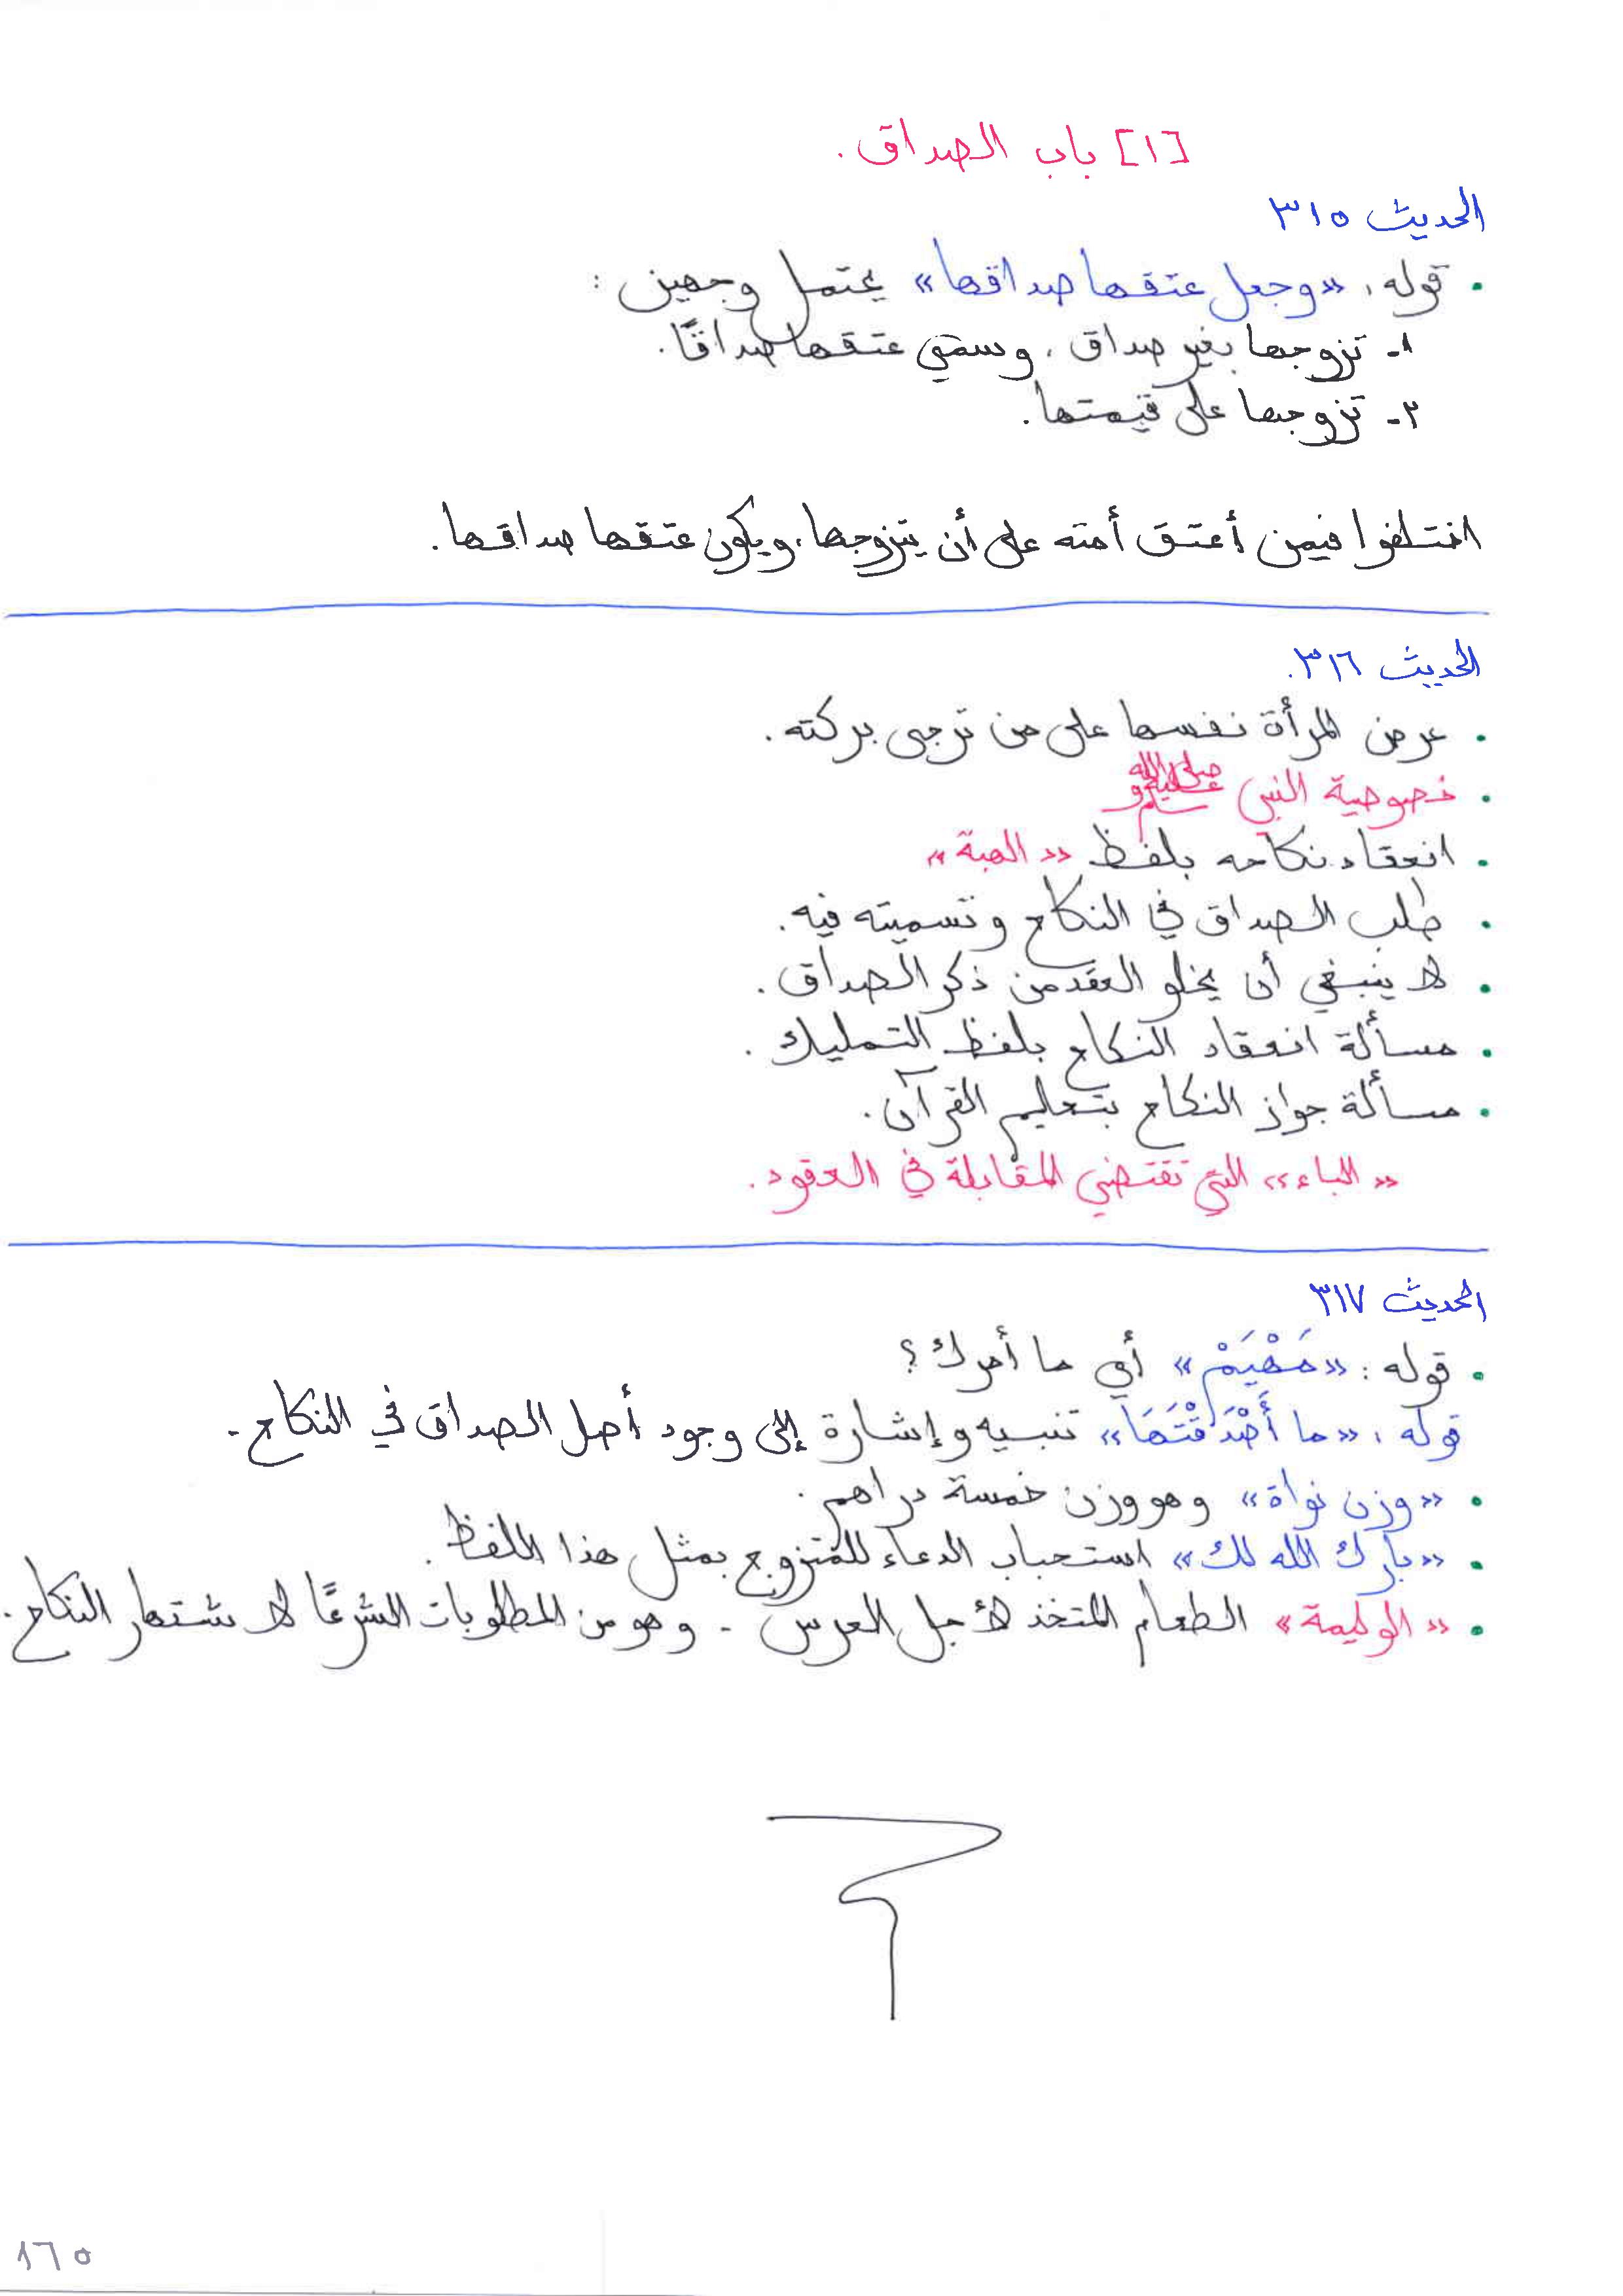 [١] باب الصداق.
الحديث ٣١٥
• قوله: «وجعل عتقها صداقها» يحتمل وجهين:
١- تزوجها بغير صداق، وسمي عتقها صداقًا.
٢- تزوجها على قيمتها.
اختلفوا فيمن أعتق أمته على أن يتزوجها، ويكون عتقها صداقها.
الحديث ٣١٦.
• عرض المرأة نفسها على من ترجى بركته.
• خصوصية النبي صلى الله عليه وسلم
• انعقاد نكاحه بلفظ «الهبة»
• طلب الصداق في النكاح وتسميته فيه.
• لا ينبغي أن يخلو العقد من ذكر الصداق.
• مسألة انعقاد النكاح بلفظ التمليك.
• مسألة جواز النكاح بتعليم القرآن.
«الباء» التي تقتضي المقابلة في العقود.
الحديث ٣١٧
• قوله: «مَهْيَمْ» أي ما أمرك؟
قوله: «ما أَصْدَقْتَهَا» تنبيه وإشارة إلى وجود أصل الصداق في النكاح.
• «وزن نواة» وهو وزن خمسة دراهم.
• «بارك الله لك» استحباب الدعاء للمتزوج بمثل هذا اللفظ.
• «الوليمة» الطعام المتخذ لأجل العرس - وهو من المطلوبات الشرعًا لاشتهار النكاح.
١٦٥